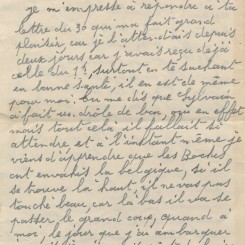 je m'empresse à répondre à ta
lettre du 30 qui m'a fait grand
plaisir, car je l'attendais depuis
deux jours, car j'avais reçu déjà
celle du 1er, surtout en te sachant
en bonne santé, il en est de même
pour moi. Tu me dis que Sylvain
a fait un drôle de bon, oui en effet
mais tout cela, il fallait si
attendre, et à l'instant même je
viens d'apprendre que les Boches
ont envahis la belgique, si il
se trouve la haut, il ne vas pas
touché beau, car la bas il va se
passer, le grand coup, quand à
moi, le jour que j'ai embarquer